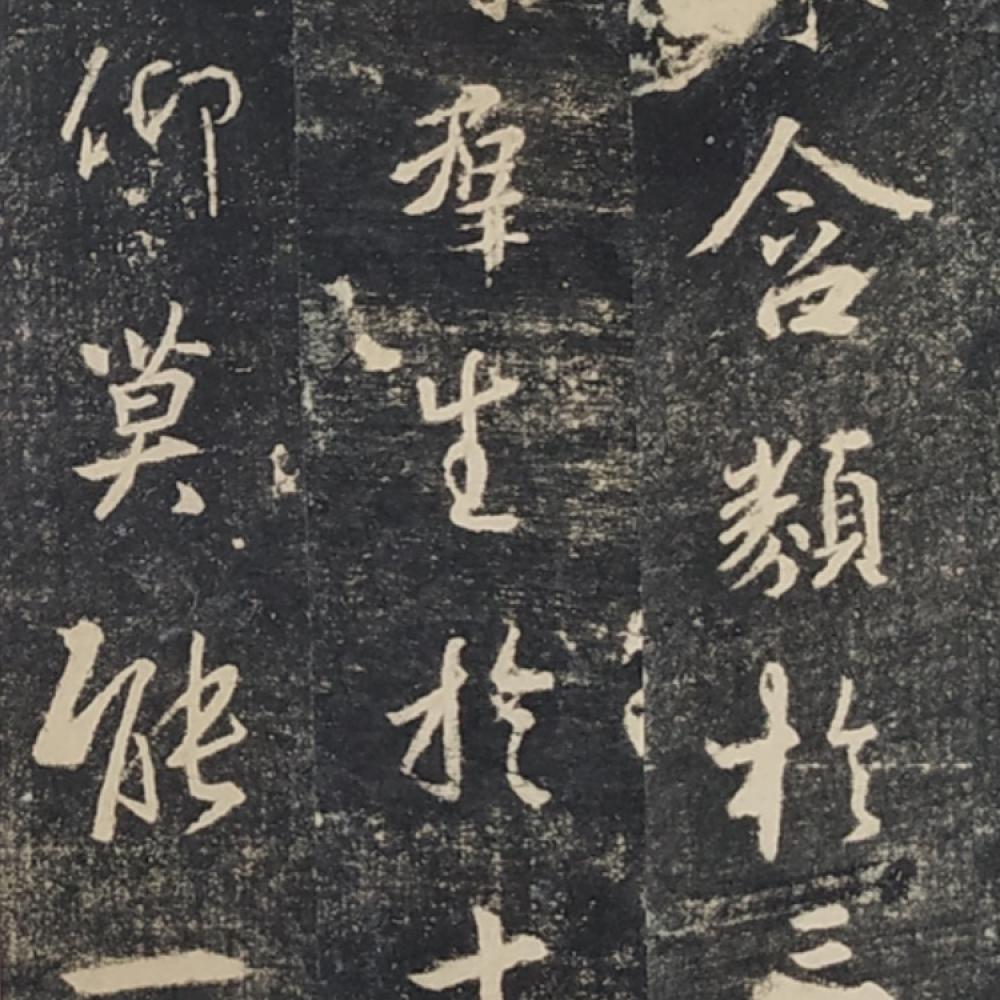 含類於三
群生於十
仰莫能一